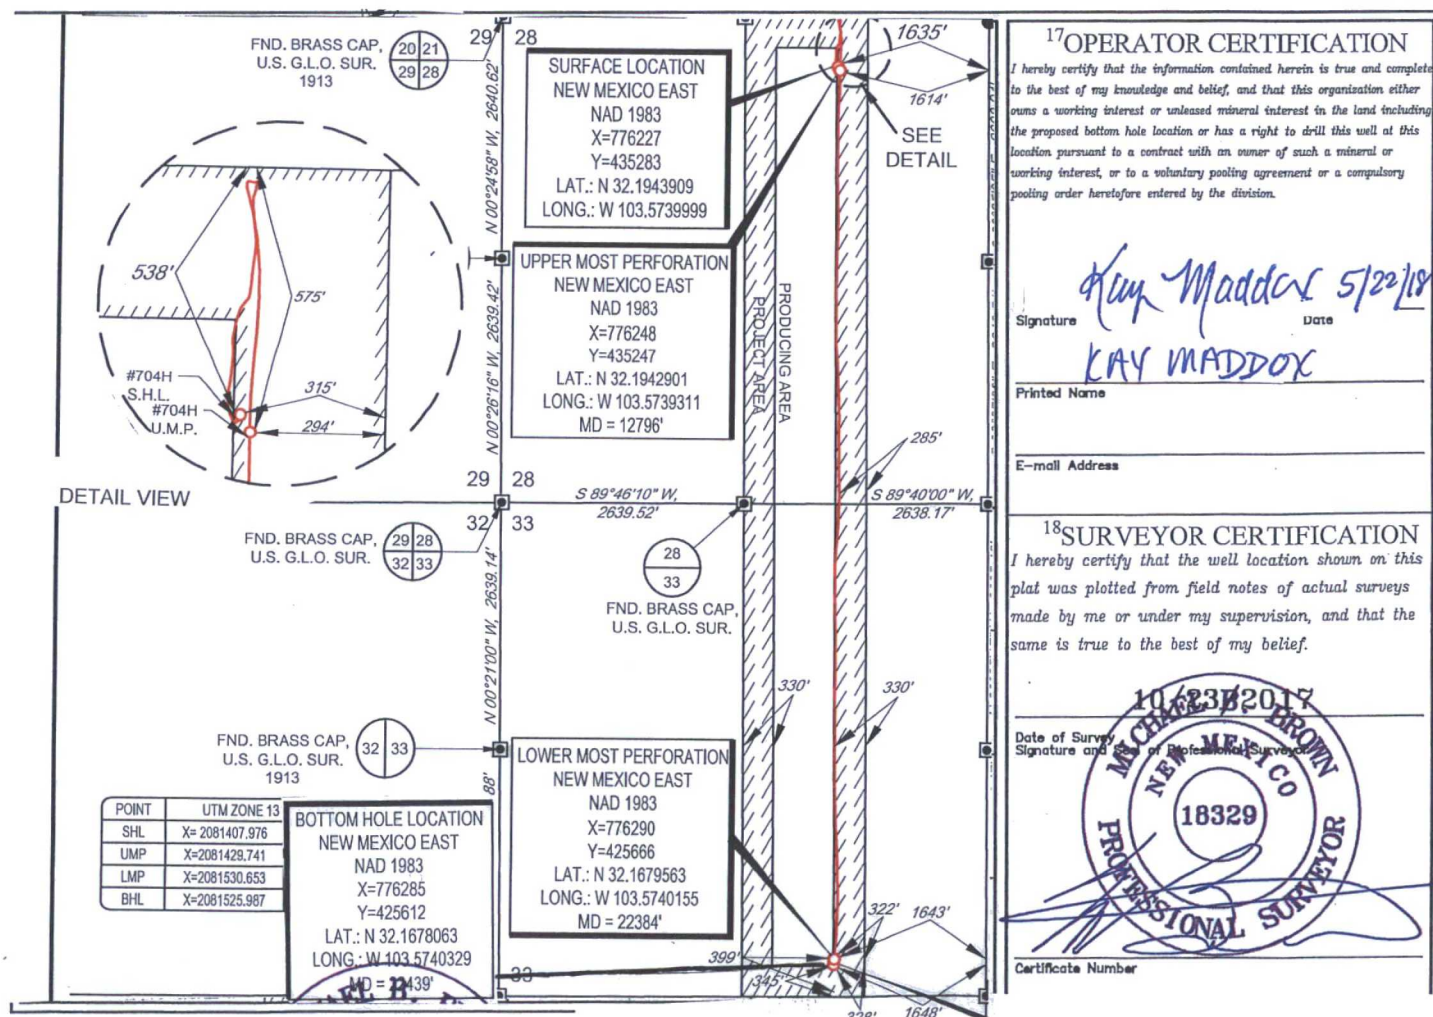 29 28
FND. BRASS CAP,
U.S. G.L.O. SUR.
1913
20 21
29 28
N 00°24'58" W, 2640.62'
SURFACE LOCATION
NEW MEXICO EAST
NAD 1983
X=776227
Y=435283
LAT.: N 32.1943909
LONG.: W 103.5739999
1635'
1614'
SEE
DETAIL
538'
575'
#704H
S.H.L.
#704H
U.M.P.
315'
294'
DETAIL VIEW
N 00°26'16" W, 2639.42'
UPPER MOST PERFORATION
NEW MEXICO EAST
NAD 1983
X=776248
Y=435247
LAT.: N 32.1942901
LONG.: W 103.5739311
MD = 12796'
PROJECT AREA
PRODUCING AREA
285'
29 28
S 89°46'10" W,
2639.52'
S 89°40'00" W,
2638.17'
32 33
FND. BRASS CAP,
U.S. G.L.O. SUR.
29 28
32 33
28
33
FND. BRASS CAP,
U.S. G.L.O. SUR.
N 00°21'00" W, 2639.14'
330'
330'
FND. BRASS CAP,
U.S. G.L.O. SUR.
1913
32 33
88'
LOWER MOST PERFORATION
NEW MEXICO EAST
NAD 1983
X=776290
Y=425666
LAT.: N 32.1679563
LONG.: W 103.5740155
MD = 22384'
POINT UTM ZONE 13
SHL X= 2081407.976
UMP X=2081429.741
LMP X=2081530.653
BHL X=2081525.987
BOTTOM HOLE LOCATION
NEW MEXICO EAST
NAD 1983
X=776285
Y=425612
LAT.: N 32.1678063
LONG.: W 103.5740329
MD = 22439'
33
322'
1643'
399'
345'
328'
1648'
17 OPERATOR CERTIFICATION
I hereby certify that the information contained herein is true and complete
to the best of my knowledge and belief, and that this organization either
owns a working interest or unleased mineral interest in the land including
the proposed bottom hole location or has a right to drill this well at this
location pursuant to a contract with an owner of such a mineral or
working interest, or to a voluntary pooling agreement or a compulsory
pooling order heretofore entered by the division.
Kay Maddox 5/22/18
Signature Date
KAY MADDOX
Printed Name
E-mail Address
18 SURVEYOR CERTIFICATION
I hereby certify that the well location shown on this
plat was plotted from field notes of actual surveys
made by me or under my supervision, and that the
same is true to the best of my belief.
10/23/2017
Date of Survey
Signature and Seal of Professional Surveyor
MICHAEL B. BROWN
NEW MEXICO
18329
PROFESSIONAL SURVEYOR
Certificate Number